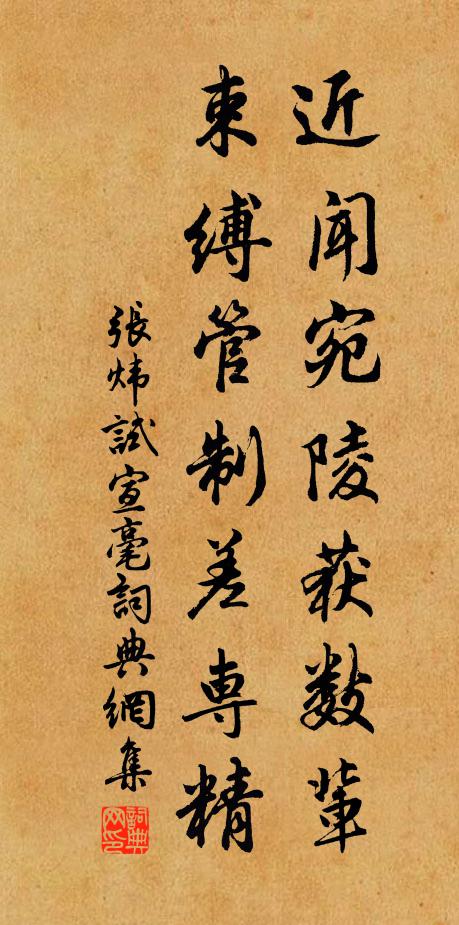 近闻宛陵获数辈
束缚管制差専精
張炜試宣毫詞典網集
詞典网印